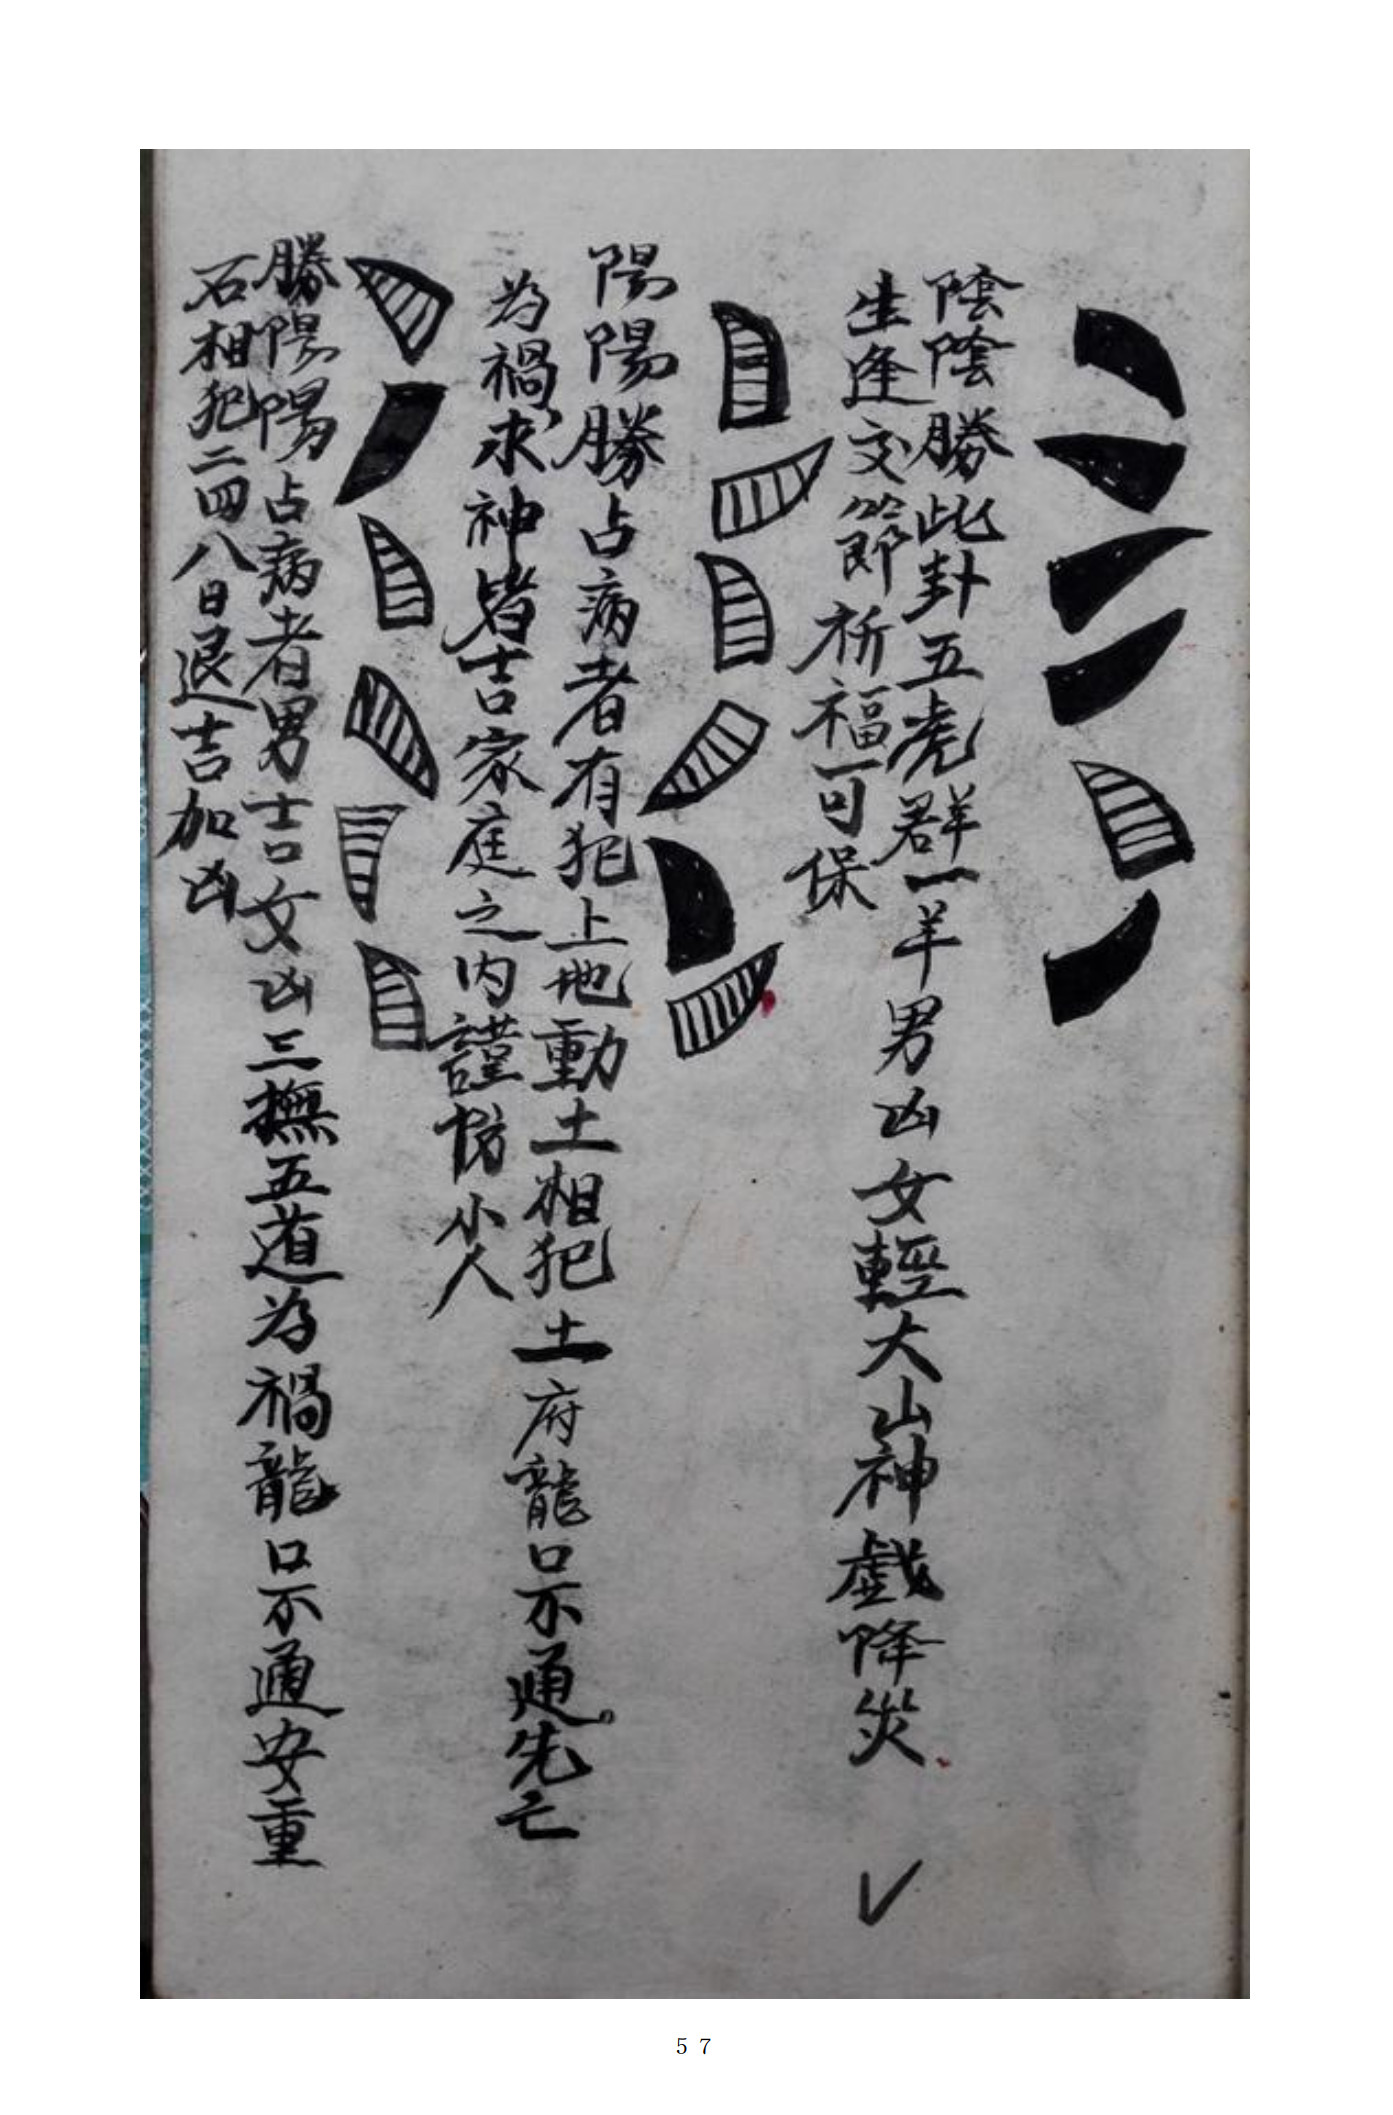 陰陰勝此卦五虎群一羊男凶女輕大山神戲降災
生逢交節祈福可保
陽陽勝占病者有犯上地動土相犯土府龍口不通先亡
為禍求神皆吉家庭之内謹防小人
勝陽陽占病者男吉女凶三撫五道為禍龍口不通安重
石相犯二四八日退吉加凶
57